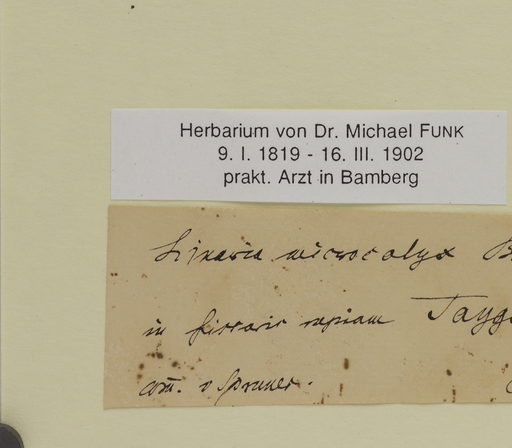 Herbarium von Dr. Michael FUNK
9. I. 1819 - 16. III. 1902
prakt. Arzt in Bamberg
Linaria microcalyx B
in fissuris rupium Tayg
com. v Spruner.